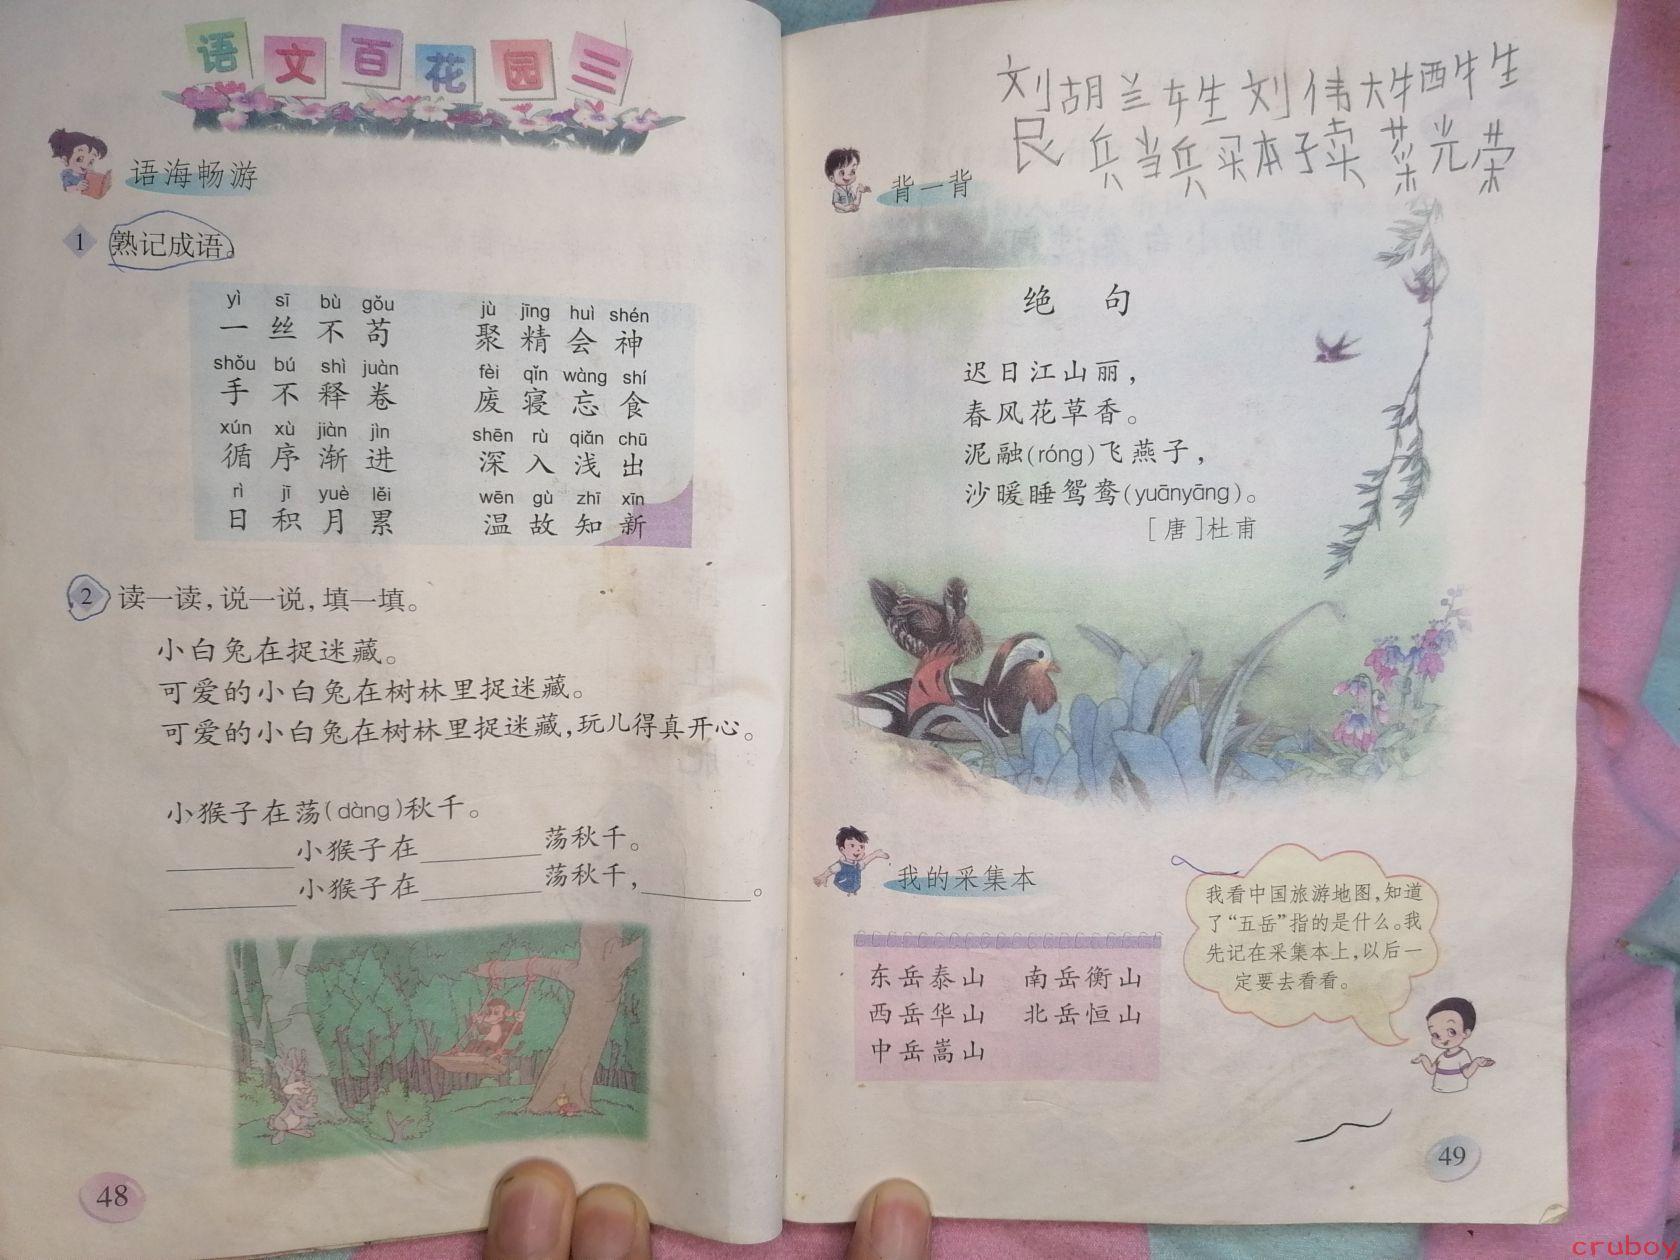 语文百花园三
语海畅游
1 熟记成语。
yì sī bù gǒu jù jīng huì shén
一丝不苟 聚精会神
shǒu bú shì juàn fèi qǐn wàng shí
手不释卷 废寝忘食
xún xù jiàn jìn shēn rù qiǎn chū
循序渐进 深入浅出
rì jī yuè lěi wēn gù zhī xīn
日积月累 温故知新
2 读一读，说一说，填一填。
小白兔在捉迷藏。
可爱的小白兔在树林里捉迷藏。
可爱的小白兔在树林里捉迷藏，玩儿得真开心。
小猴子在荡(dàng)秋千。
________小猴子在________荡秋千。
________小猴子在________荡秋千，________。
48
刘胡兰 生刘伟大牛西牛生
兵当兵买本子卖菜光荣
背一背
绝 句
迟日江山丽，
春风花草香。
泥融(róng)飞燕子，
沙暖睡鸳鸯(yuānyāng)。
［唐］杜甫
我的采集本
东岳泰山 南岳衡山
西岳华山 北岳恒山
中岳嵩山
我看中国旅游地图，知道
了“五岳”指的是什么。我
先记在采集本上，以后一
定要去看看。
49
cruboy